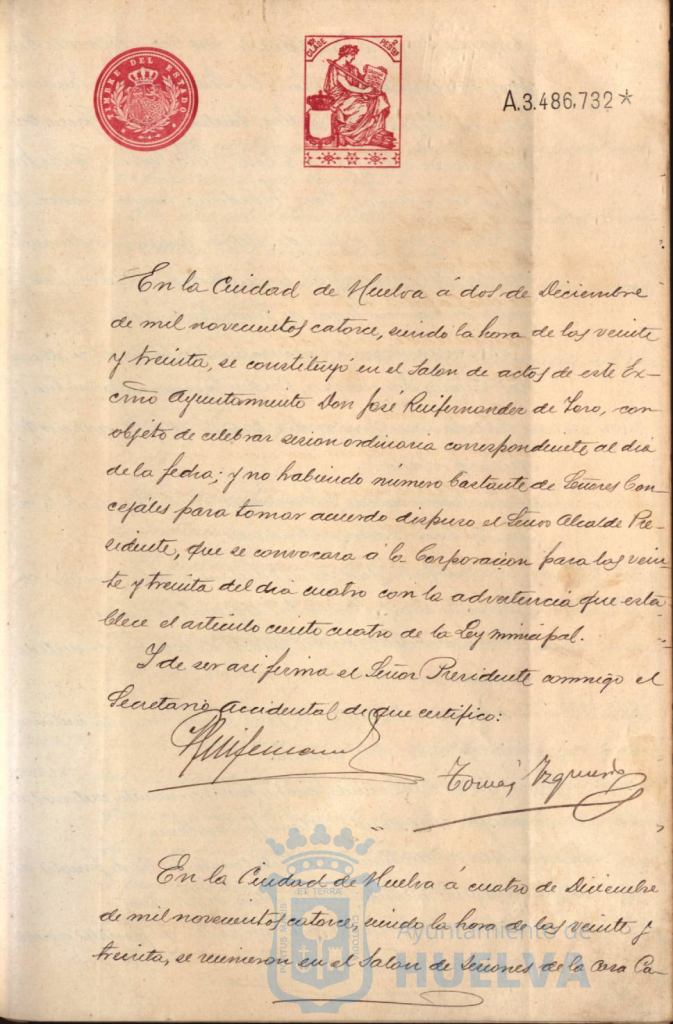 TIMBRE DEL ESTADO
10ª CLASE 2 PESTAS
A.3.486,732*
En la Ciudad de Huelva á dos de Diciembre
de mil novecientos catorce, siendo la hora de las veinte
y treinta, se constituyó en el Salon de actos de este Ex-
cmo Ayuntamiento Don José Ruifernandez de Toro, con
objeto de celebrar sesion ordinaria correspondiente al dia
de la fecha; y no habiendo número bastante de Señores Con-
cejáles para tomar acuerdo dispuso el Señor Alcalde Pre-
sidente, que se convocara á la Corporacion para las vein-
te y treinta del dia cuatro con la advertencia que esta-
blece el artículo ciento cuatro de la Ley municipal.
I de ser asi firma el Señor Presidente conmigo el
Secretario Accidental de que certifico:
Ruifernandez
Tomás Yzquierdo
En la Ciudad de Huelva á cuatro de Diciembre
de mil novecientos catorce, siendo la hora de las veinte y
treinta, se reunieron en el Salon de Sesiones de la casa Ca-
Ayuntamiento de
HUELVA